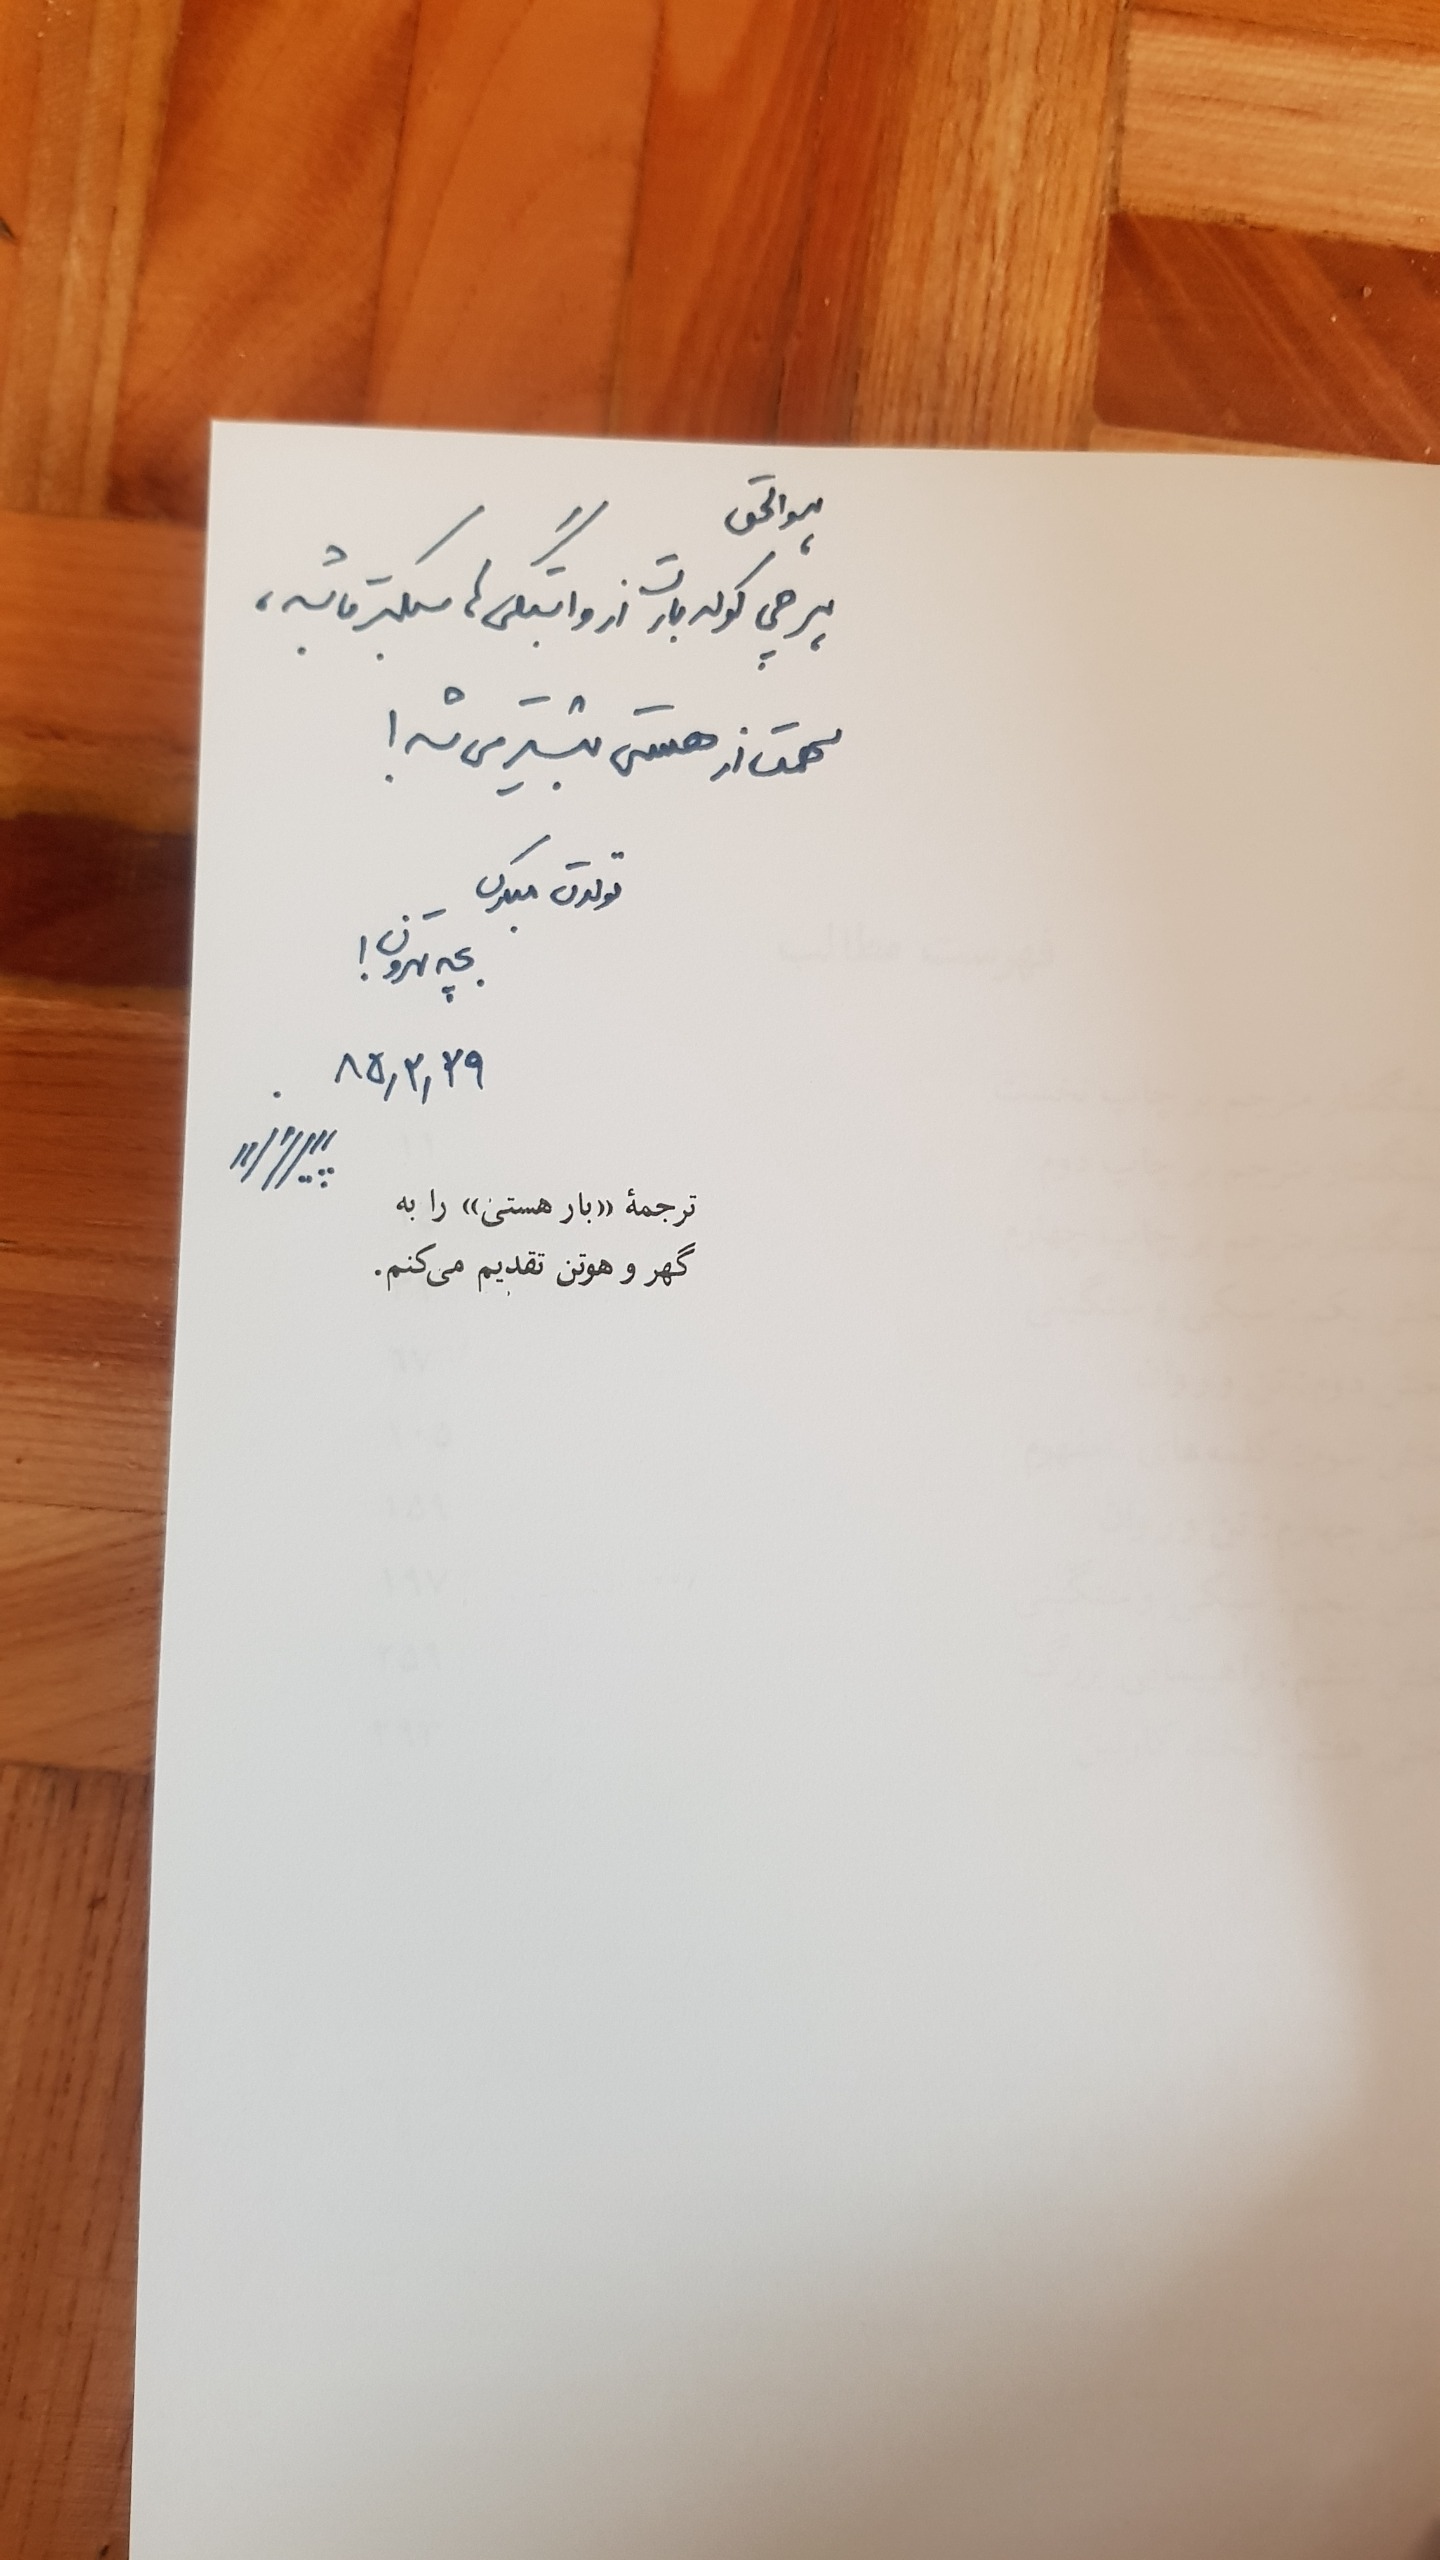 هوالحق
هر چی کوله بارت از وابستگی ها سبکتر باشه،
سهمت از هستی بیشتر می شه!
تولدت مبارک
بچه تهرون!
۸۵٫۲٫۲۹
ترجمهٔ «بار هستی» را به
گهر و هوتن تقدیم می‌کنم.